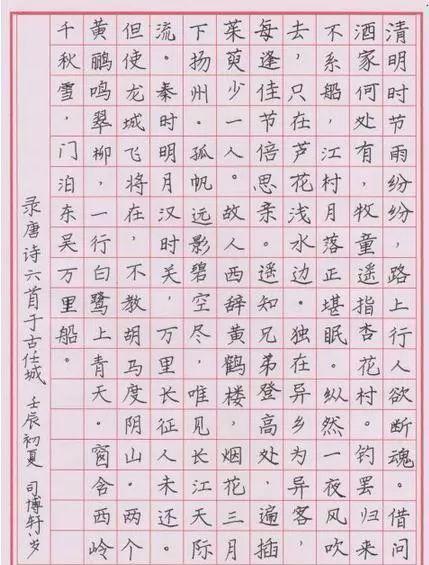 清明时节雨纷纷，路上行人欲断魂。借问
酒家何处有，牧童遥指杏花村。钓罢归来
不系船，江村月落正堪眠。纵然一夜风吹
去，只在芦花浅水边。独在异乡为异客，
每逢佳节倍思亲。遥知兄弟登高处，遍插
茱萸少一人。故人西辞黄鹤楼，烟花三月
下扬州。孤帆远影碧空尽，唯见长江天际
流。秦时明月汉时关，万里长征人未还。
但使龙城飞将在，不教胡马度阴山。两个
黄鹂鸣翠柳，一行白鹭上青天。窗含西岭
千秋雪，门泊东吴万里船。
录唐诗六首于古任城 壬辰初夏 司博轩 岁